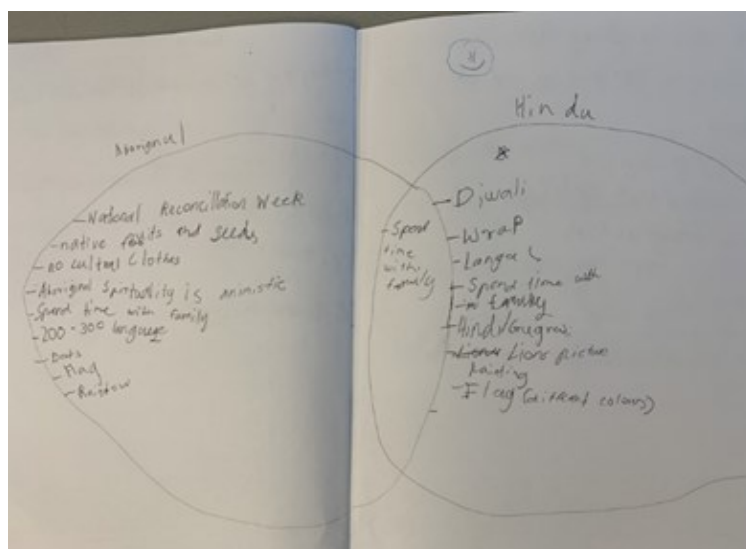 Aborignal
- National Reconcillation Week
- native and seeds
- no cultural Clothes
- Aboriginal Spirtuality is animistic
- Spend time with family
- 200-300 language
- Dots
- Flag
- Rainbow
- Spend
time
with
family
Hindu
- Diwali
- Wrap
- Spend time with
family
- Hindi
- Lions picture
Painting
- Flag (different colours)